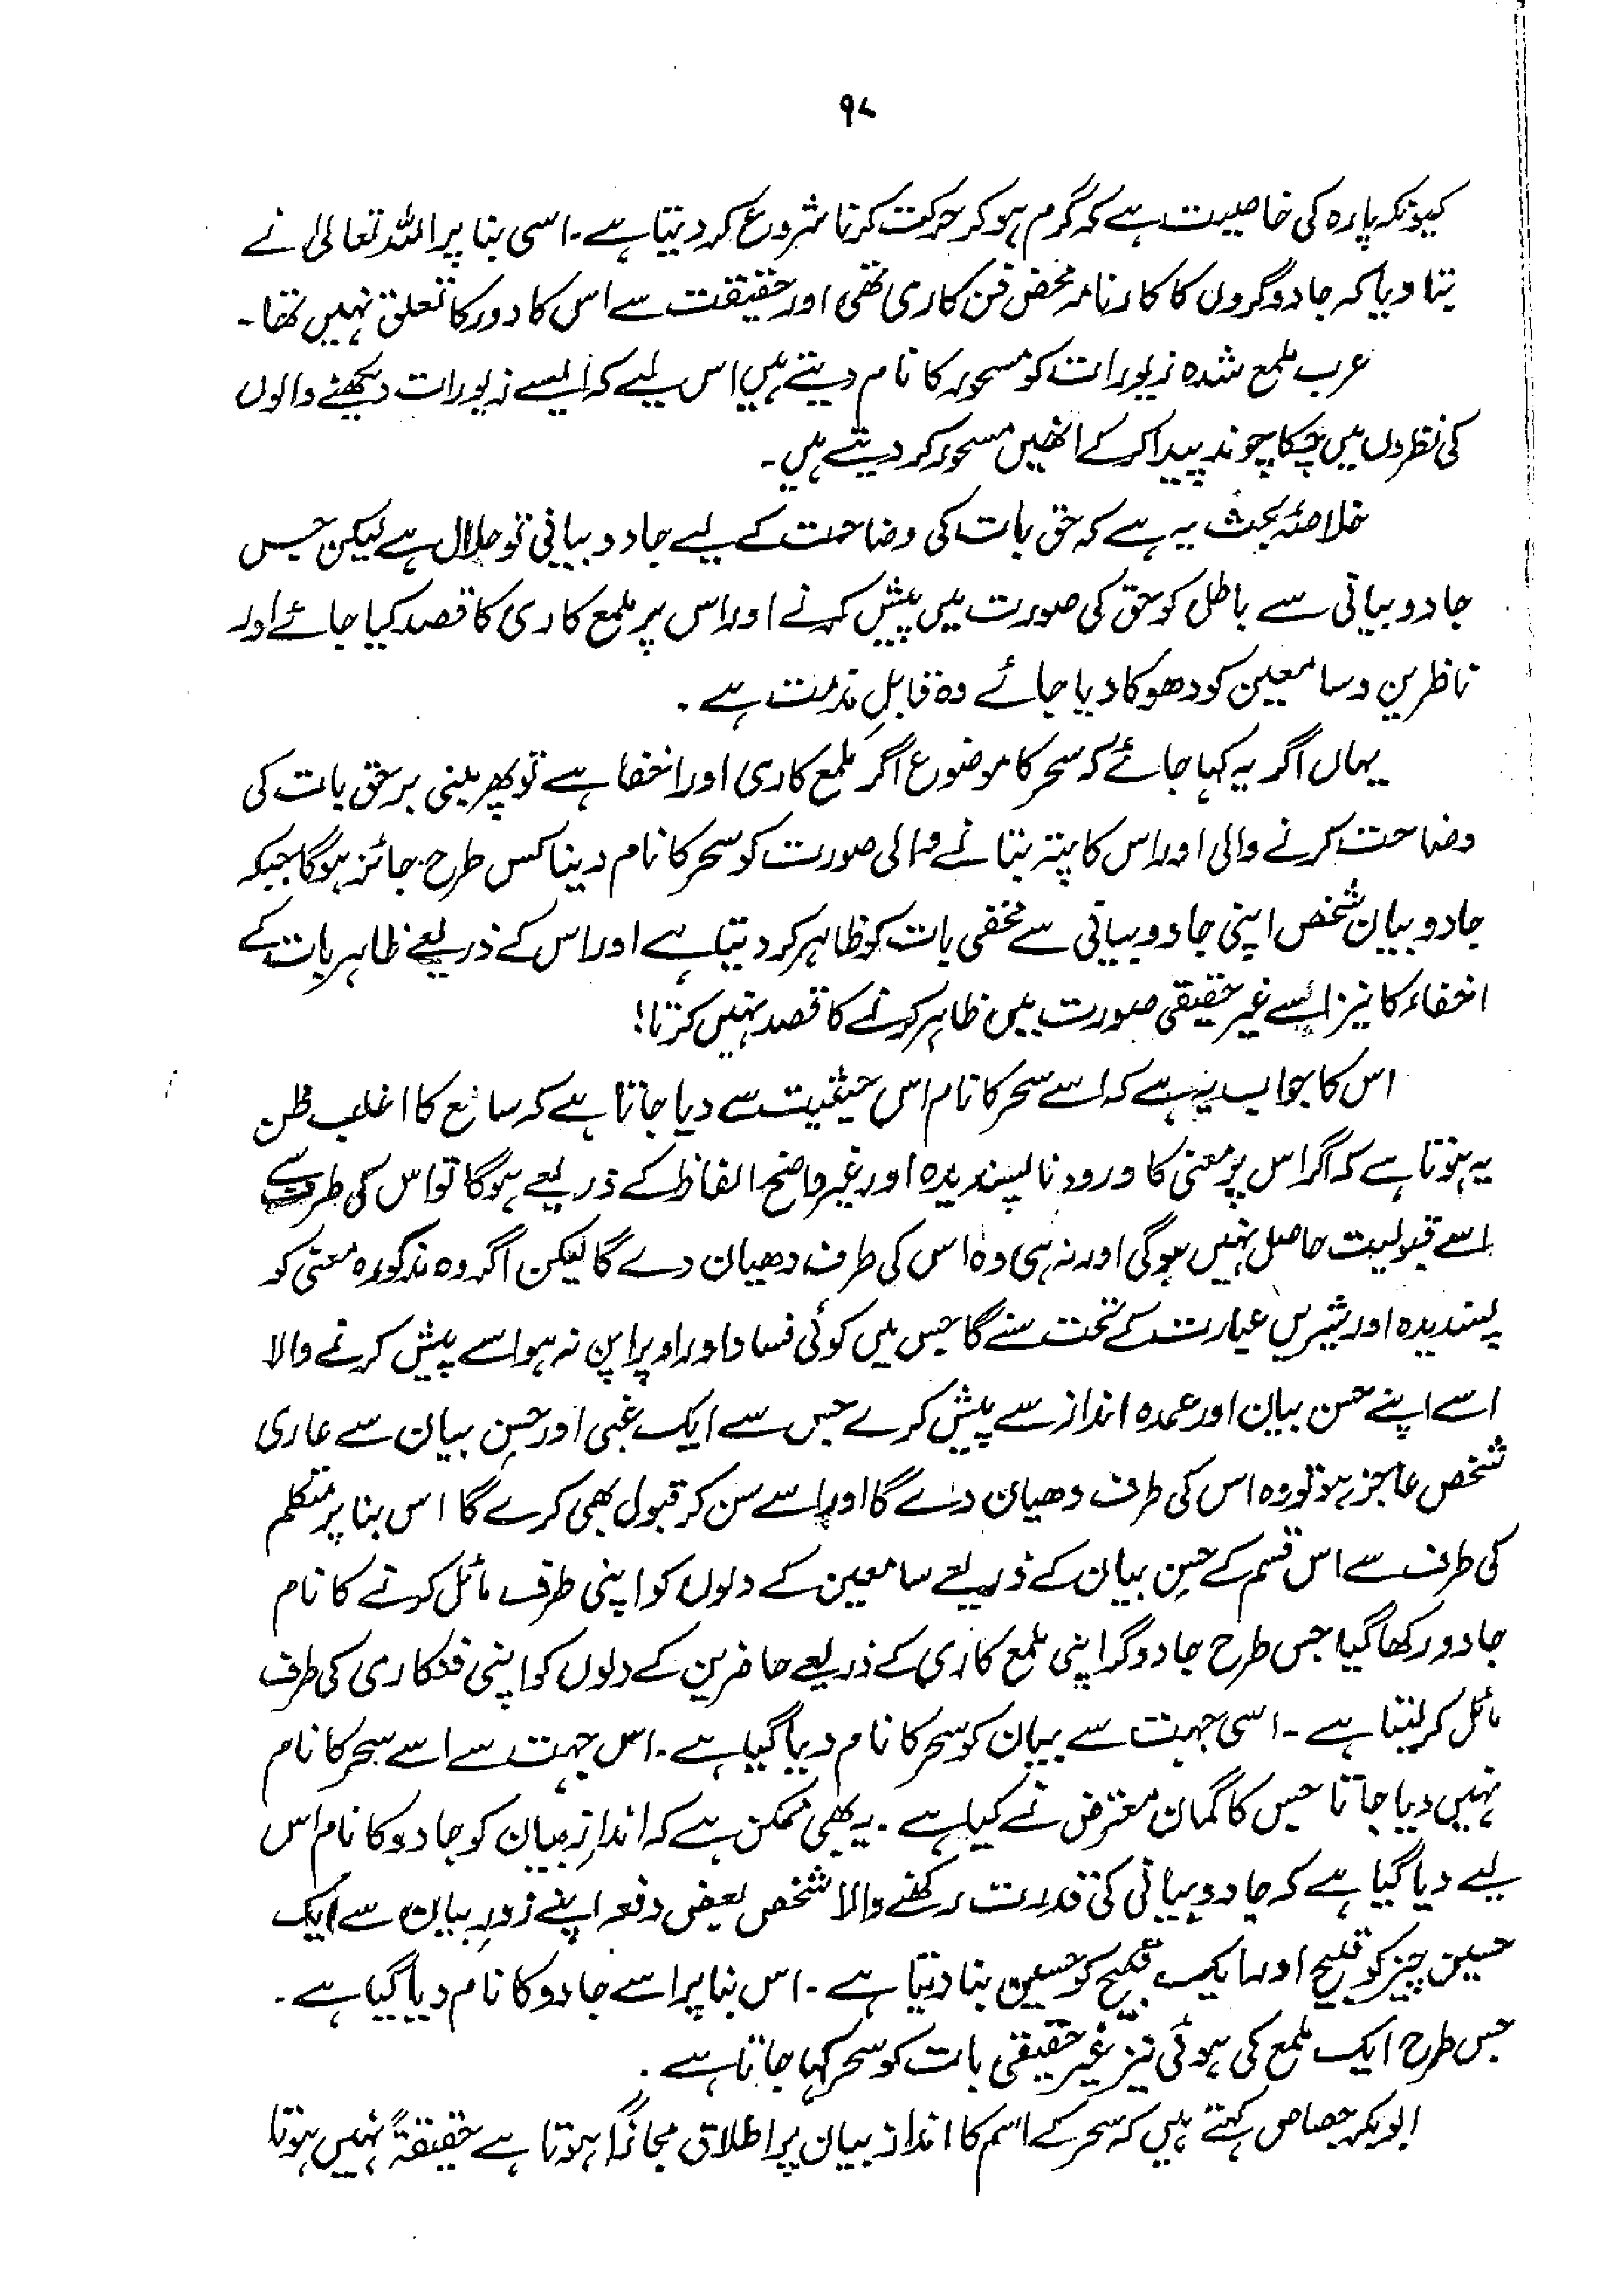 ۹۷
کیونکہ پارہ کی خاصیت ہے کہ گرم ہو کر حرکت کرنا شروع کر دیتا ہے۔ اسی بنا پر اللہ تعالیٰ نے
بتا دیا کہ جادوگروں کا کارنامہ محض فن کاری تھی اور حقیقت سے اس کا دور کا تعلق نہیں تھا۔
عرب ملمع شدہ زیورات کو مسحور کا نام دیتے ہیں اس لیے کہ ایسے زیورات دیکھنے والوں
کی نظروں میں چکا چوند پیدا کر کے انھیں مسحور کر دیتے ہیں۔
خلاصۂ بحث یہ ہے کہ حق بات کی وضاحت کے لیے جادو بیانی تو حلال ہے لیکن جس
جادو بیانی سے باطل کو حق کی صورت میں پیش کرنے اور اس پر ملمع کاری کا قصد کیا جائے اور
ناظرین وسامعین کو دھوکا دیا جائے وہ قابلِ مذمت ہے۔
یہاں اگر یہ کہا جائے کہ سحر کا موضوع اگر ملمع کاری اور اخفا ہے تو پھر مبنی بر حق بات کی
وضاحت کرنے والی اور اس کا پتہ بتانے والی صورت کو سحر کا نام دینا کس طرح جائز ہو گا جبکہ
جادو بیان شخص اپنی جادو بیانی سے مخفی بات کو ظاہر کر دیتا ہے اور اس کے ذریعے ظاہر بات کے
اخفاء کا نیز اسے غیر حقیقی صورت میں ظاہر کرنے کا قصد نہیں کرتا!
اس کا جواب یہ ہے کہ اسے سحر کا نام اس حیثیت سے دیا جاتا ہے کہ سامع کا اغلب ظن
یہ ہوتا ہے کہ اگر اس پر معنی کا ورود ناپسندیدہ اور غیر واضح الفاظ کے ذریعے ہو گا تو اس کی طرف سے
اسے قبولیت حاصل نہیں ہو گی اور نہ ہی وہ اس کی طرف دھیان دے گا لیکن اگر وہ مذکورہ معنی کو
پسندیدہ اور شیریں عبارت کے تحت سنے گا جس میں کوئی فساد اور اوپرا پن نہ ہو اسے پیش کرنے والا
اسے اپنے حسن بیان اور عمدہ انداز سے پیش کرے جس سے ایک غبی اور حسنِ بیان سے عاری
شخص عاجز ہو تو وہ اس کی طرف دھیان دے گا اور اسے سن کر قبول بھی کرے گا اس بنا پر متکلم
کی طرف سے اس قسم کے حسنِ بیان کے ذریعے سامعین کے دلوں کو اپنی طرف مائل کرنے کا نام
جادو رکھا گیا جس طرح جادوگر اپنی ملمع کاری کے ذریعے حاضرین کے دلوں کو اپنی فنکاری کی طرف
مائل کر لیتا ہے۔ اسی جہت سے بیان کو سحر کا نام دیا گیا ہے۔ اس جہت سے اسے سحر کا نام
نہیں دیا جاتا جس کا گمان معترض نے کیا ہے۔ یہ بھی ممکن ہے کہ اندازِ بیان کو جادو کا نام اس
لیے دیا گیا ہے کہ جادو بیانی کی قدرت رکھنے والا شخص بعض دفعہ اپنے زورِ بیان سے ایک
حسین چیز کو قبیح اور ایک قبیح کو حسین بنا دیتا ہے۔ اس بنا پر اسے جادو کا نام دیا گیا ہے۔
جس طرح ایک ملمع کی ہوئی نیز غیر حقیقی بات کو سحر کہا جاتا ہے۔
ابوبکر جصاص کہتے ہیں کہ سحر کے اسم کا انداز بیان پر اطلاق مجازاً ہوتا ہے حقیقۃً نہیں ہوتا